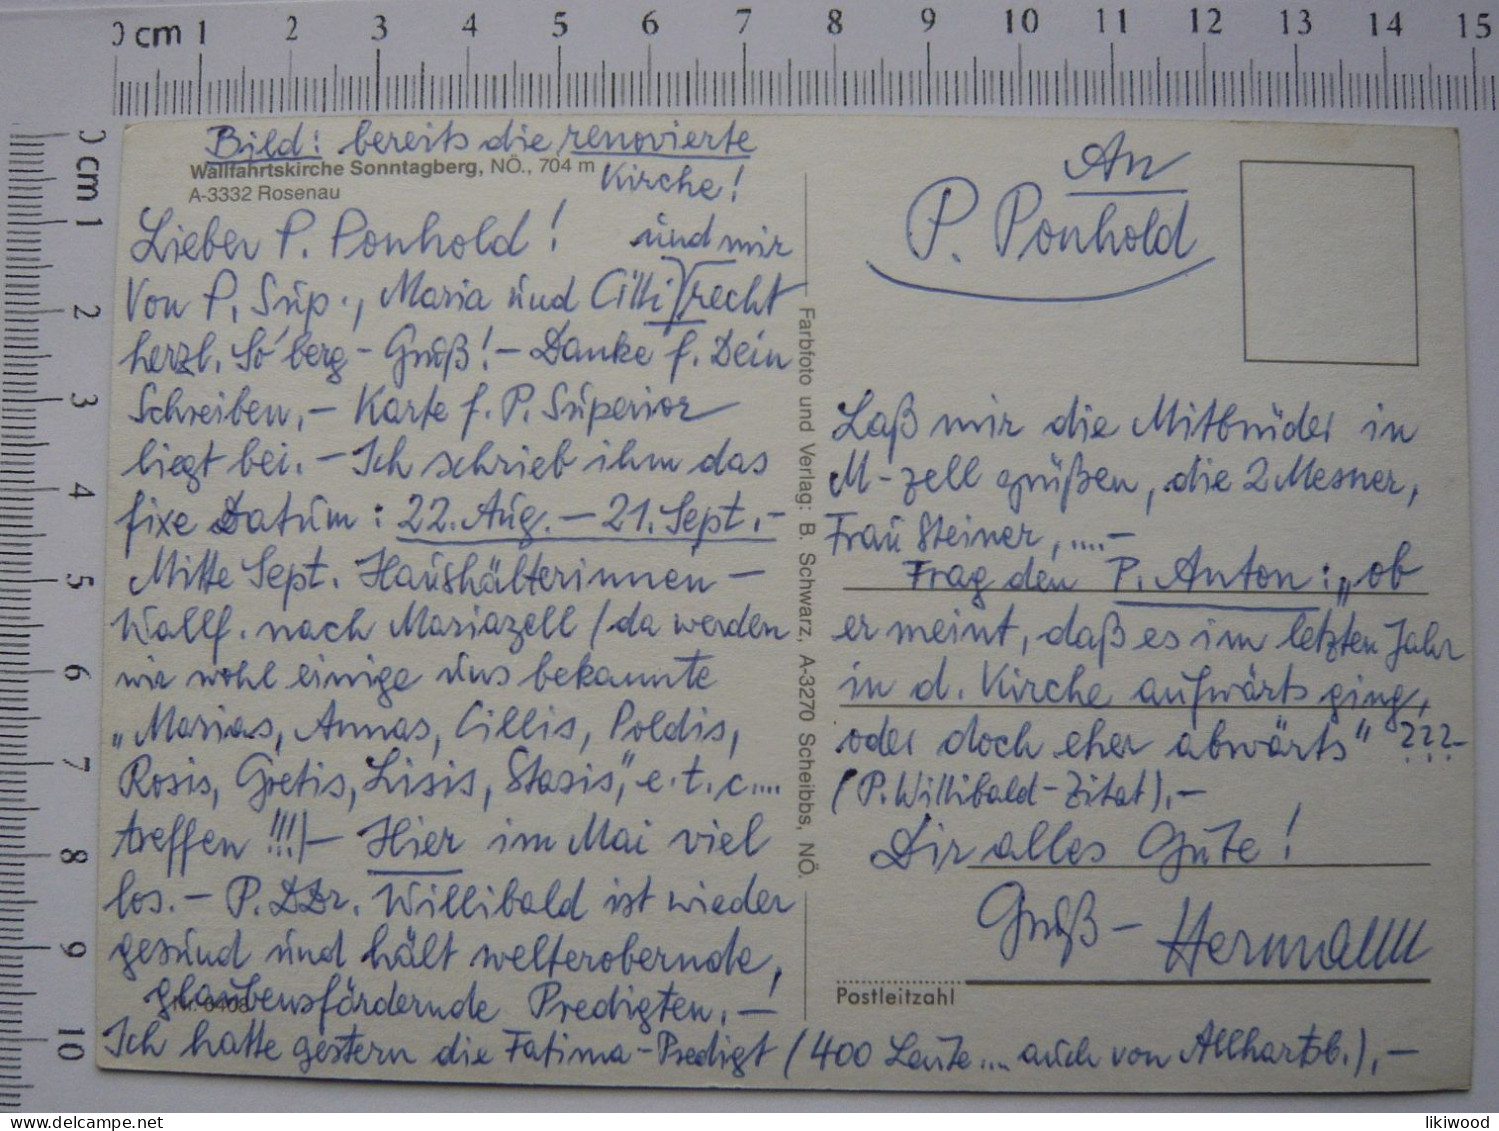 0 cm 1 2 3 4 5 6 7 8 9 10 11 12 13 14 15
0 cm 1 2 3 4 5 6 7 8 9 10
Bild: bereits die renovierte
Kirche!
Wallfahrtskirche Sonntagberg, NÖ., 704 m
A-3332 Rosenau
Lieber P. Ponhold!
und mir
Von P. Sup., Maria und Cilli recht
herzl. So'berg - Gruß! - Danke f. Dein
Schreiben, - Karte f. P. Superior
liegt bei. - Ich schrieb ihm das
fixe Datum: 22. Aug. - 21. Sept. -
Mitte Sept. Haushälterinnen -
Wallf. nach Mariazell (da werden
wir wohl einige uns bekannte
"Marias, Annas, Cillis, Poldis,
Rosis, Gretis, Lisis, Stasis," e.t.c....
treffen!!!) - Hier im Mai viel
los. - P. DDr. Willibald ist wieder
gesund und hält welterobernde,
glaubensfördernde Predigten. -!
Nr. 0408
Ich hatte gestern die Fatima-Predigt (400 Leute.... auch von Allhartsb.), -
Farbfoto und Verlag: B. Schwarz, A-3270 Scheibbs, NÖ.
An
P. Ponhold
Laß mir die Mitbrüder in
M-zell grüßen, die 2 Mesner,
Frau Steiner, ....-
Frag den P. Anton: "ob
er meint, daß es im letzten Jahr
in d. Kirche aufwärts ging,
oder doch eher abwärts" ???-
(P. Willibald-Zitat), -
Dir alles Gute!
Gruß - Hermann
Postleitzahl
likiwood